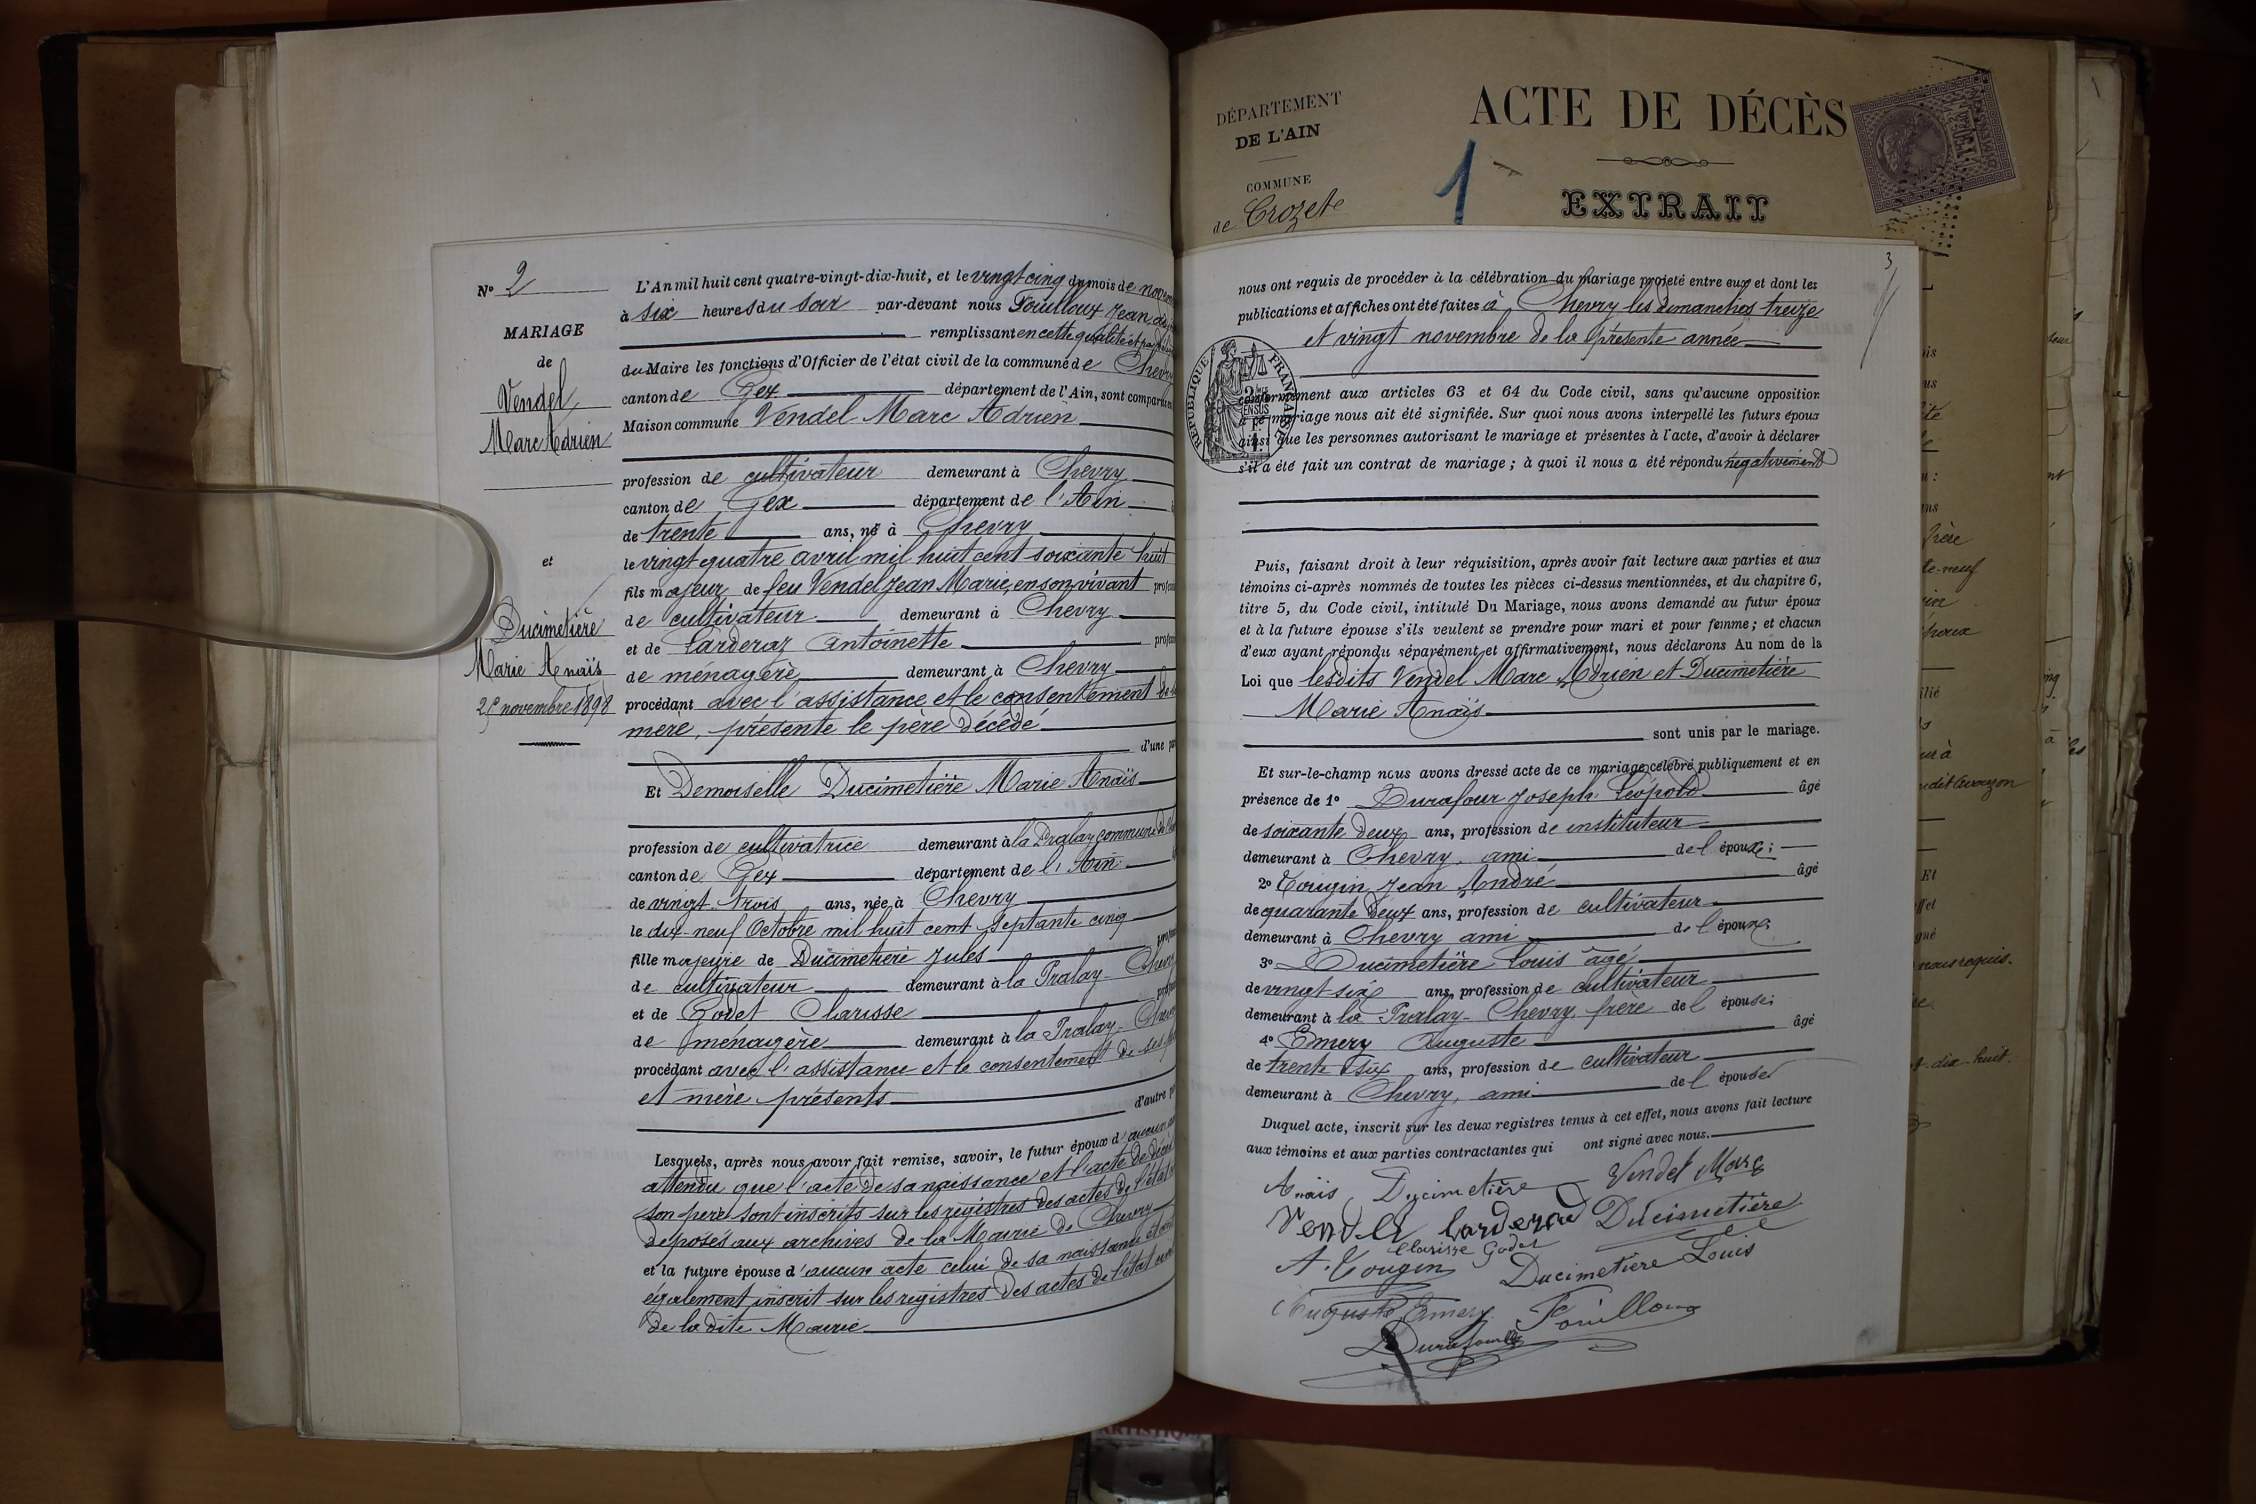 N° 2
MARIAGE
de
Vendel
Marc Adrien
et
Ducimetière
Marie Anaïs
25 novembre 1898
L'An mil huit cent quatre-vingt-dix-huit, et le vingt cinq du mois de novem
à six heures du soir par-devant nous Fouilloux Jean
remplissant en cette qualité et par
du Maire les fonctions d'Officier de l'état civil de la commune de Chevry
canton de Gex département de l'Ain, sont comparu
Maison commune Vendel Marc Adrien
profession de cultivateur demeurant à Chevry
canton de Gex département de l'Ain
de trente ans, né à Chevry
le vingt quatre avril mil huit cent soixante huit
fils majeur de feu Vendel Jean Marie, en son vivant profess
de cultivateur demeurant à Chevry
et de Larderaz Antoinette profess
de ménagère demeurant à Chevry
procédant avec l'assistance et le consentement de sa
mère, présente le père décédé
d'une par
Et Demoiselle Ducimetière Marie Anaïs
profession de cultivatrice demeurant à la Pralay commune de
canton de Gex département de l'Ain
de vingt trois ans, née à Chevry
le dix-neuf Octobre mil huit cent septante cinq
fille majeure de Ducimetière Jules profes
de cultivateur demeurant à la Pralay - Chevry
et de Godet Clarisse profes
de ménagère demeurant à la Pralay - Chevry
procédant avec l'assistance et le consentement de ses
et mère présents
d'autre pa
Lesquels, après nous avoir fait remise, savoir, le futur époux d'aucun
attendu que l'acte de sa naissance et l'acte de décès
son père sont inscrits sur les registres des actes de l'état
déposés aux archives de la Mairie de Chevry
et la future épouse d'aucun acte celui de sa naissance étant
également inscrit sur les registres des actes de l'état
de la dite Mairie
DÉPARTEMENT
DE L'AIN
COMMUNE
de Crozet
1
ACTE DE DÉCÈS
EXTRAIT
3
nous ont requis de procéder à la célébration du mariage projeté entre eux et dont les
publications et affiches ont été faites à Chevry les dimanches treize
et vingt novembre de la présente année
RÉPUBLIQUE FRANÇAISE
conformément aux articles 63 et 64 du Code civil, sans qu'aucune opposition
à ce mariage nous ait été signifiée. Sur quoi nous avons interpellé les futurs époux
ainsi que les personnes autorisant le mariage et présentes à l'acte, d'avoir à déclarer
s'il a été fait un contrat de mariage ; à quoi il nous a été répondu négativement
Puis, faisant droit à leur réquisition, après avoir fait lecture aux parties et aux
témoins ci-après nommés de toutes les pièces ci-dessus mentionnées, et du chapitre 6,
titre 5, du Code civil, intitulé Du Mariage, nous avons demandé au futur époux
et à la future épouse s'ils veulent se prendre pour mari et pour femme ; et chacun
d'eux ayant répondu séparément et affirmativement, nous déclarons Au nom de la
Loi que lesdits Vendel Marc Adrien et Ducimetière
Marie Anaïs
sont unis par le mariage.
Et sur-le-champ nous avons dressé acte de ce mariage célébré publiquement et en
présence de 1° Durafour Joseph Léopold âgé
de soixante deux ans, profession de instituteur
demeurant à Chevry, ami de l'époux ;
2° Tougin Jean André âgé
de quarante deux ans, profession de cultivateur
demeurant à Chevry ami de l'époux ;
3° Ducimetière Louis âgé
de vingt-six ans, profession de cultivateur
demeurant à la Pralay - Chevry, frère de l'épouse ;
4° Emery Auguste âgé
de trente six ans, profession de cultivateur
demeurant à Chevry, ami de l'épouse
Duquel acte, inscrit sur les deux registres tenus à cet effet, nous avons fait lecture
aux témoins et aux parties contractantes qui ont signé avec nous.
Anaïs Ducimetière Vendel Marc
Larderaz Ducimetière
Clarisse Godet
A. Tougin Ducimetière Louis
Auguste Emery Fouilloux
Durafour